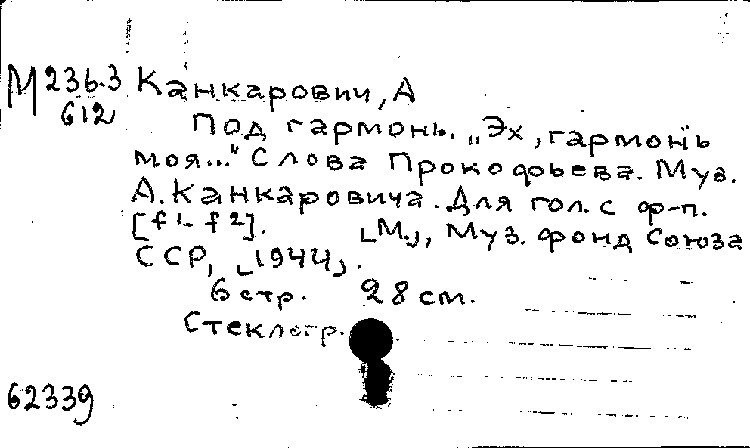 М 236.3 Канкарович, А
612
Под гармонь. „Эх, гармонь
моя..." Слова Прокофьева. Муз.
А. Канкаровича. Для гол. с ф-п.
[f¹- f²]. [М.], Муз. фонд Союза
ССР, [1944].
6 стр. 28 см.
Стеклогр.
62339